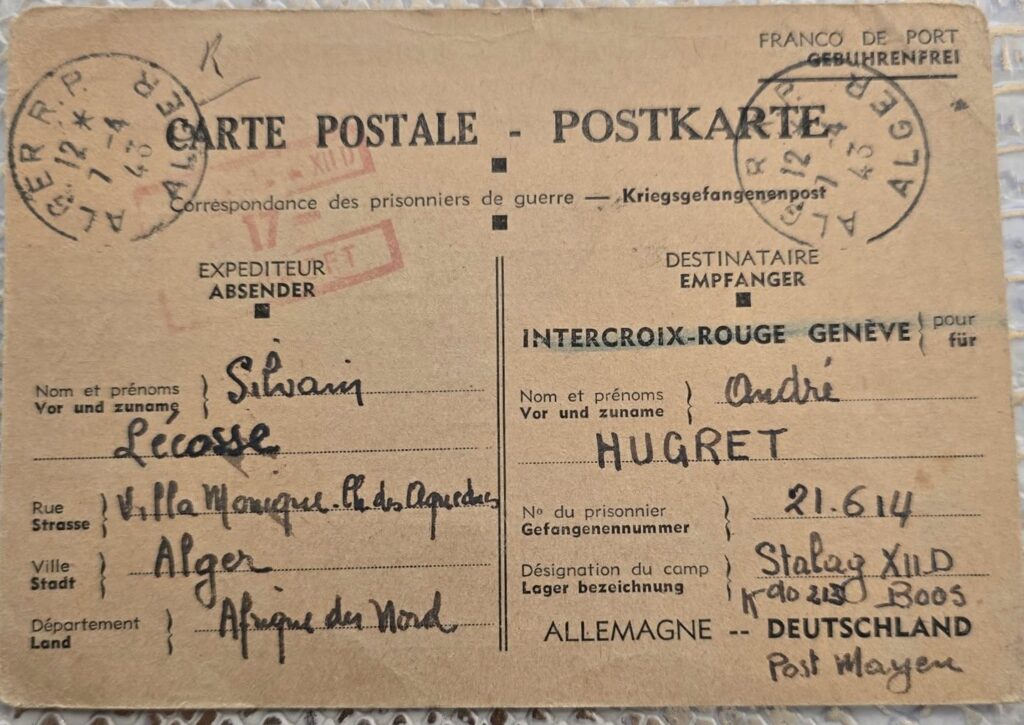 FRANCO DE PORT
GEBUHRENFREI
ALGER R.P. ALGER
12 *
7 -4
43
R
CARTE POSTALE - POSTKARTE
ALGER R.P. ALGER
12 *
7 -4
43
XII D
17
Correspondance des prisonniers de guerre — Kriegsgefangenenpost
EXPEDITEUR
ABSENDER
Nom et prénoms
Vor und zuname
Silvain
Lécosse
Rue
Strasse
Villa Monique. Ch. des Aqueducs
Ville
Stadt
Alger
Département
Land
Afrique du Nord
DESTINATAIRE
EMPFANGER
INTERCROIX-ROUGE GENÈVE
pour
für
Nom et prénoms
Vor und zuname
André
HUGRET
No du prisonnier
Gefangenennummer
21.614
Désignation du camp
Lager bezeichnung
Stalag XII D
Kdo 213 BOOS
ALLEMAGNE -- DEUTSCHLAND
Post Mayen